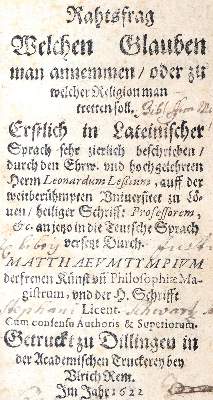 Rahtsfrag
Welchen Glauben
man annemmen / oder zu
welcher Religion man
tretten soll.
Erstlich in Lateinischer
Sprach sehr zierlich beschriben /
durch den Ehrw. vnd hochgelehrten
Herrn Leonardum Lessium, auff der
weitberühmpten Vniuersitet zu Lö-
uen / heiliger Schrifft Professorem,
&c. an jetzo in die Teutsche Sprach
versetzt Durch.
MATTHAEVM TYMPIVM
der freyen Künst vñ Philosophiæ Ma-
gistrum, vnd der H. Schrifft
Licent.
Cum consensu Authoris & Superiorum.
Getruckt zu Dillingen in
der Academischen Truckerey bey
Vlrich Rem.
Im Jahr 1622